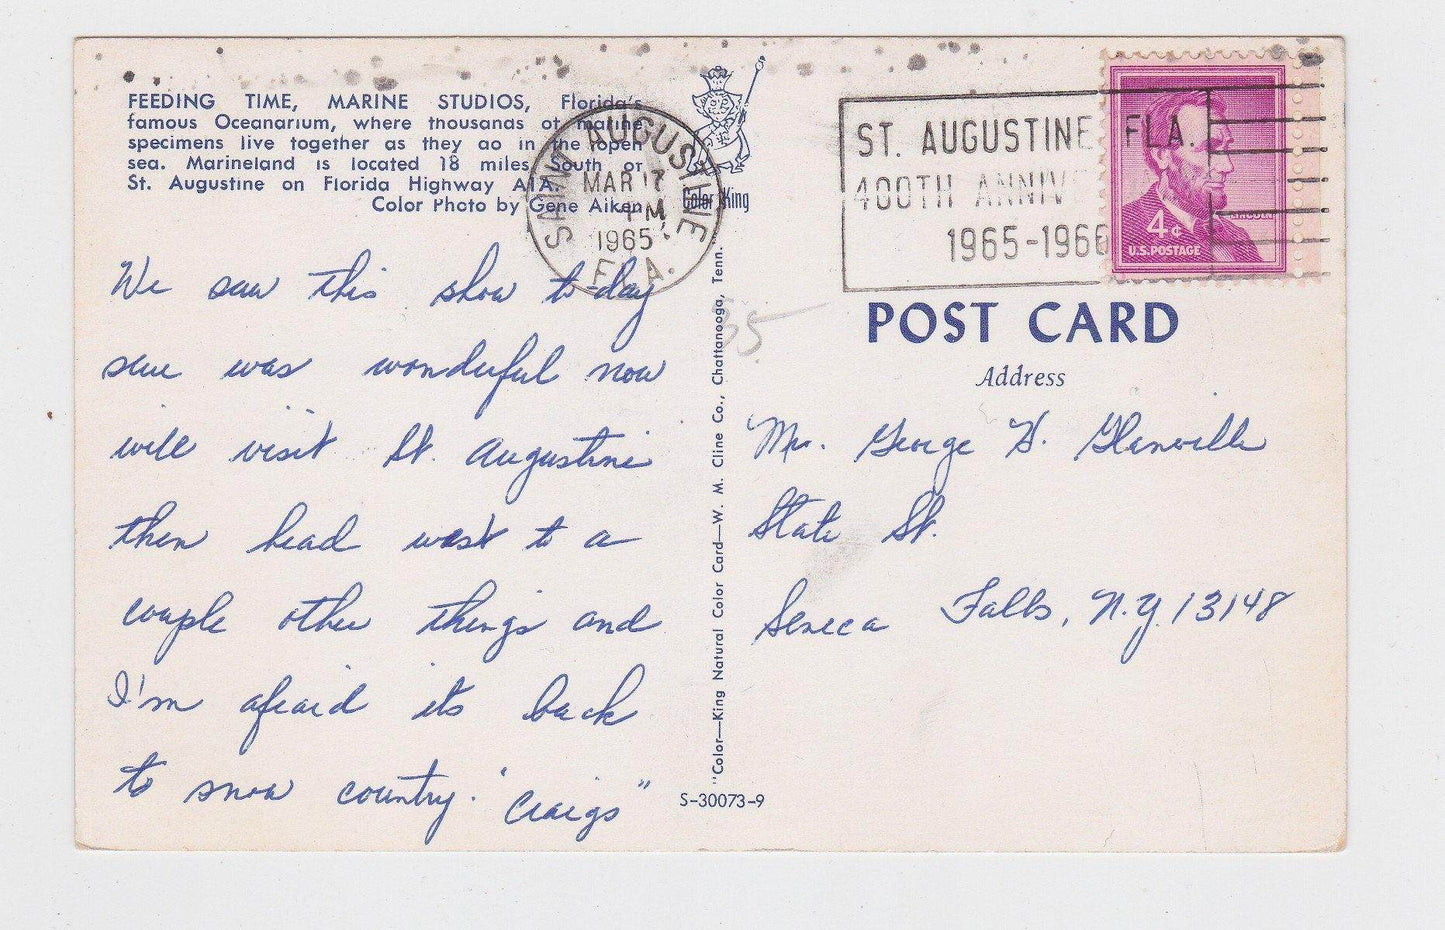 FEEDING TIME, MARINE STUDIOS, Florida's
famous Oceanarium, where thousands of marine
specimens live together as they do in the open
sea. Marineland is located 18 miles South of
St. Augustine on Florida Highway A1A.
Color Photo by Gene Aiken
Color King
SAINT AUGUSTINE
MAR 17
PM
1965
FLA.
ST. AUGUSTINE FLA.
400TH ANNIV
1965-1966
LINCOLN
4¢
U.S. POSTAGE
POST CARD
Address
We saw this show to-day
sure was wonderful now
will visit St. Augustine
then head west to a
couple other things and
I'm afraid its back
to snow country. "Craigs"
35
"Color—King Natural Color Card—W. M. Cline Co., Chattanooga, Tenn."
S-30073-9
George H. Glanville
State St.
Seneca Falls, N.Y. 13148